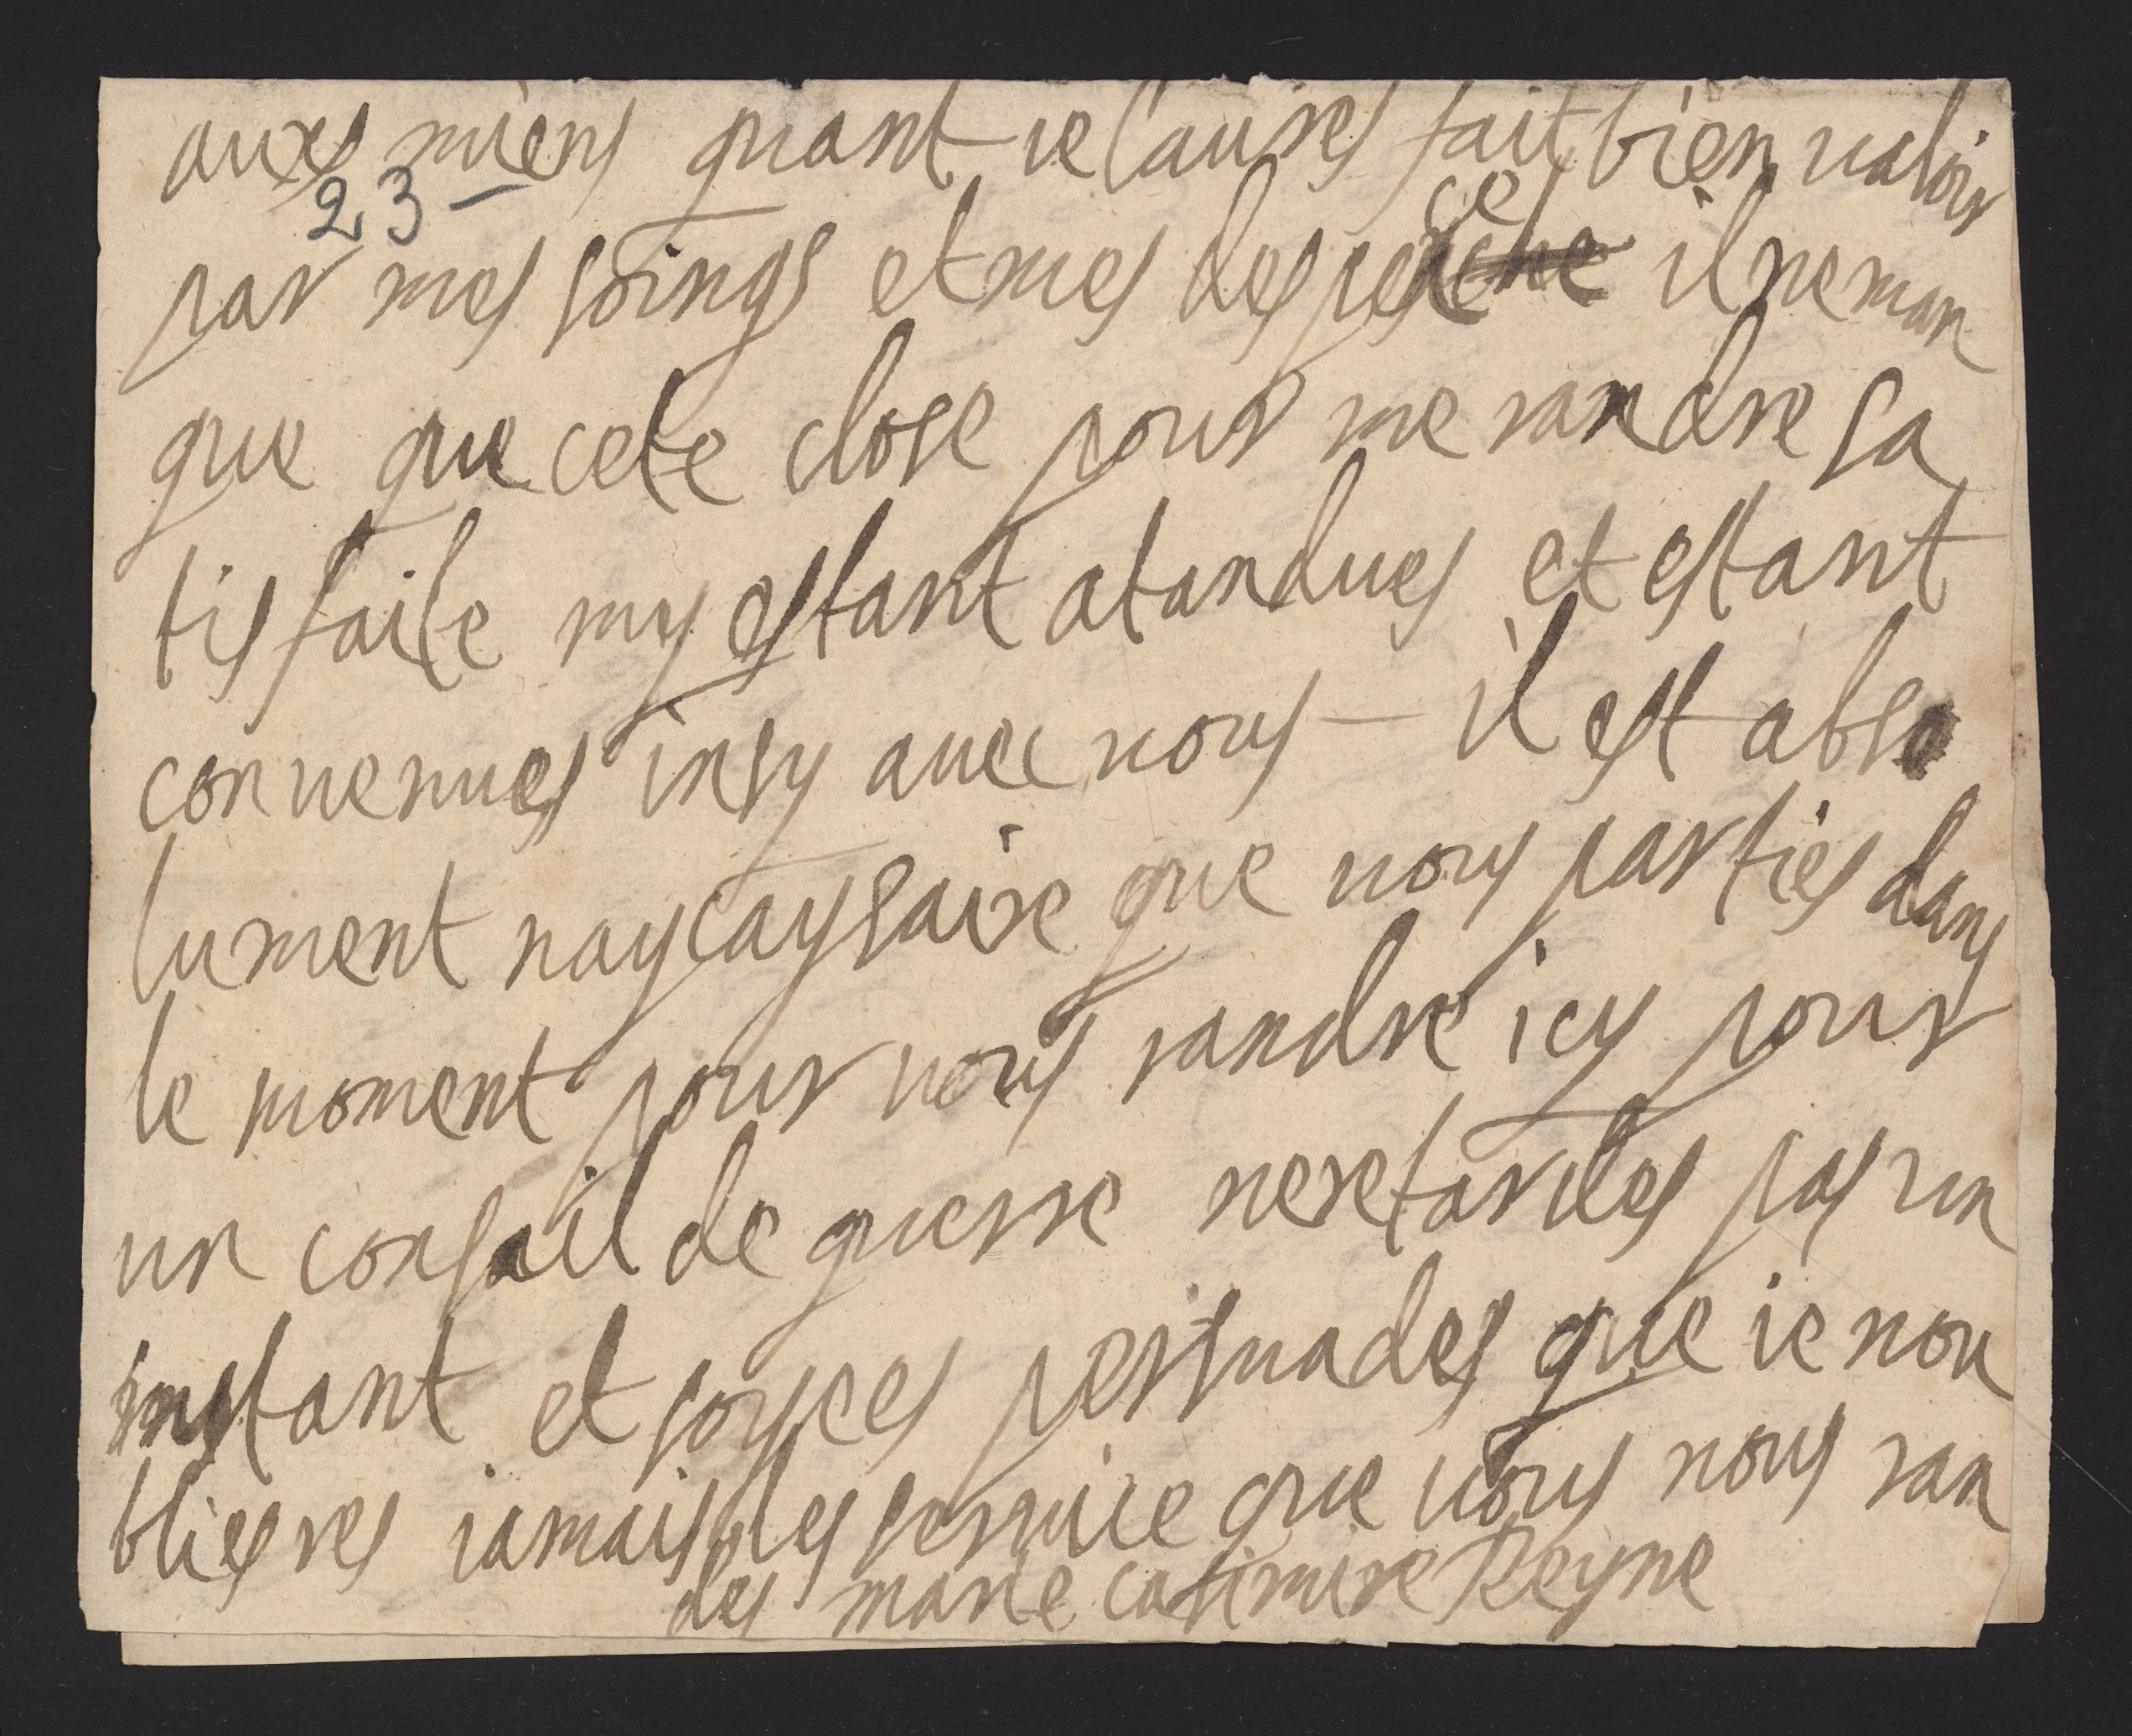 auxes miens quant ie laures fait bien ualoir
23
par mes soings et mes despe ce il ne man
que que cete chose pour me randre sa
tisfaite my estant atandues et estant
conuenues insy auec uous il est abso
lument nayçaysaire que uous parties dans
le moment pour uous randre icy pour
un consail de guerre ne retardes pas un
instant et soyees persuades que ie nou
blieres iamais les seruice que uous nous ran
des marie casimire Reyne